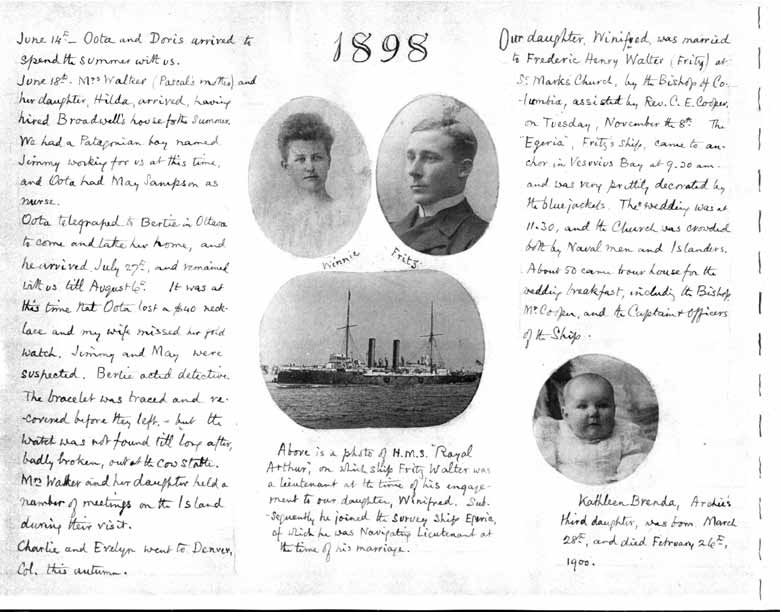 June 14th – Oota and Doris arrived to
spend the summer with us.
June 18th. Mrs Walker (Pascal's mother) and
her daughter, Hilda, arrived, having
hired Broadwell's house for the Summer.
We had a Patagonian boy named
Jimmy working for us at this time,
and Oota had May Sampson as
nurse.
Oota telegraped to Bertie in Ottawa
to come and take her home, and
he arrived July 27th, and remained
with us till August 6th. It was at
this time that Oota lost a $40 neck-
lace and my wife missed her gold
watch. Jimmy and May were
suspected. Bertie acted detective.
The bracelet was traced and re-
-covered before they left, – but the
watch was not found till long after,
badly broken, out at the Cow Stable.
Mrs Walker and her daughter held a
number of meetings on the Island
during their visit.
Charlie and Evelyn went to Denver,
Col. this autumn.
1898
Winnie
Fritz.
Above is a photo of H.M.S. "Royal
Arthur", on which ship Fritz Walter was
a lieutenant at the time of his engage-
ment to our daughter, Winifred. Sub-
-sequently he joined the Survey Ship Egeria,
of which he was Navigating Lieutenant at
the time of his marriage.
Our daughter, Winifred, was married
to Frederic Henry Walter (Fritz) at
St Mark's Church, by the Bishop of Co-
-lumbia, assisted by Rev. C. E. Cooper,
on Tuesday, November the 8th. The
"Egeria", Fritz's ship, came to an-
chor in Vesuvius Bay at 9.20 am.
and was very prettily decorated by
the bluejackets. The wedding was at
11.30, and the Church was crowded
both by Naval men and Islanders.
About 50 came to our house for the
wedding breakfast, including the Bishop,
Mr Cooper, and the Captain & Officers
of the Ship.
Kathleen Brenda, Archie's
third daughter, was born March
28th, and died February 26th,
1900.